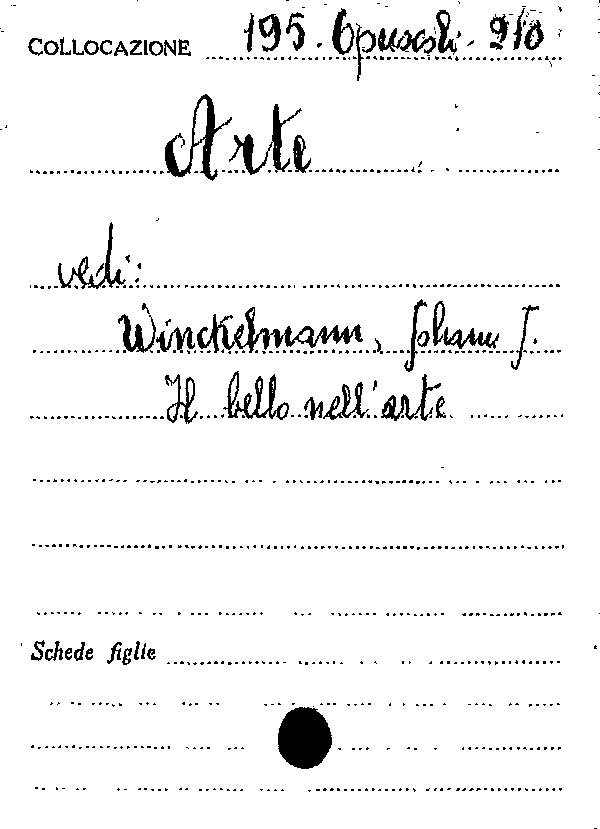 COLLOCAZIONE 195. Opuscoli. 210
Arte
vedi:
Winckelmann, Johann J.
Il bello nell'arte
Schede figlie